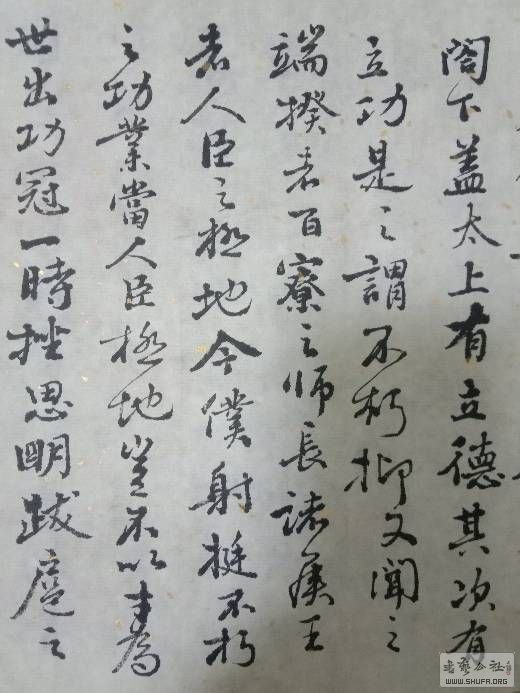 閣下蓋太上有立德其次有
立功是之謂不朽抑又聞之
端揆者百寮之师長諸侯王
者人臣之極地今僕射挺不朽
之功業當人臣極地豈不以才為
世出功冠一時挫思明跋扈之
書藝公社
WWW.SHUFA.ORG